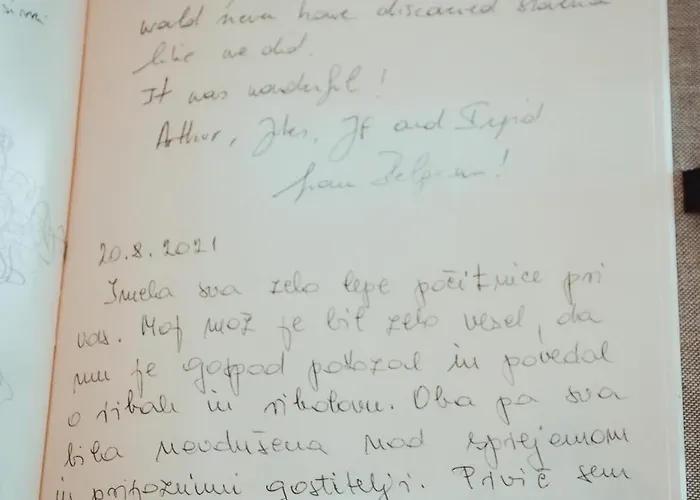 would never have discovered
like we did.
It was wonderful!
Arthur, and
from Belgium!
20.8.2021
Imela sva zelo lepe počitnice pri
vas. Moj mož je bil zelo vesel, da
mu je gospod pokazal in povedal
o ribah in ribolovu. Oba pa sva
bila navdušena nad sprejemom
in prijaznimi gostitelji. Prvič sem